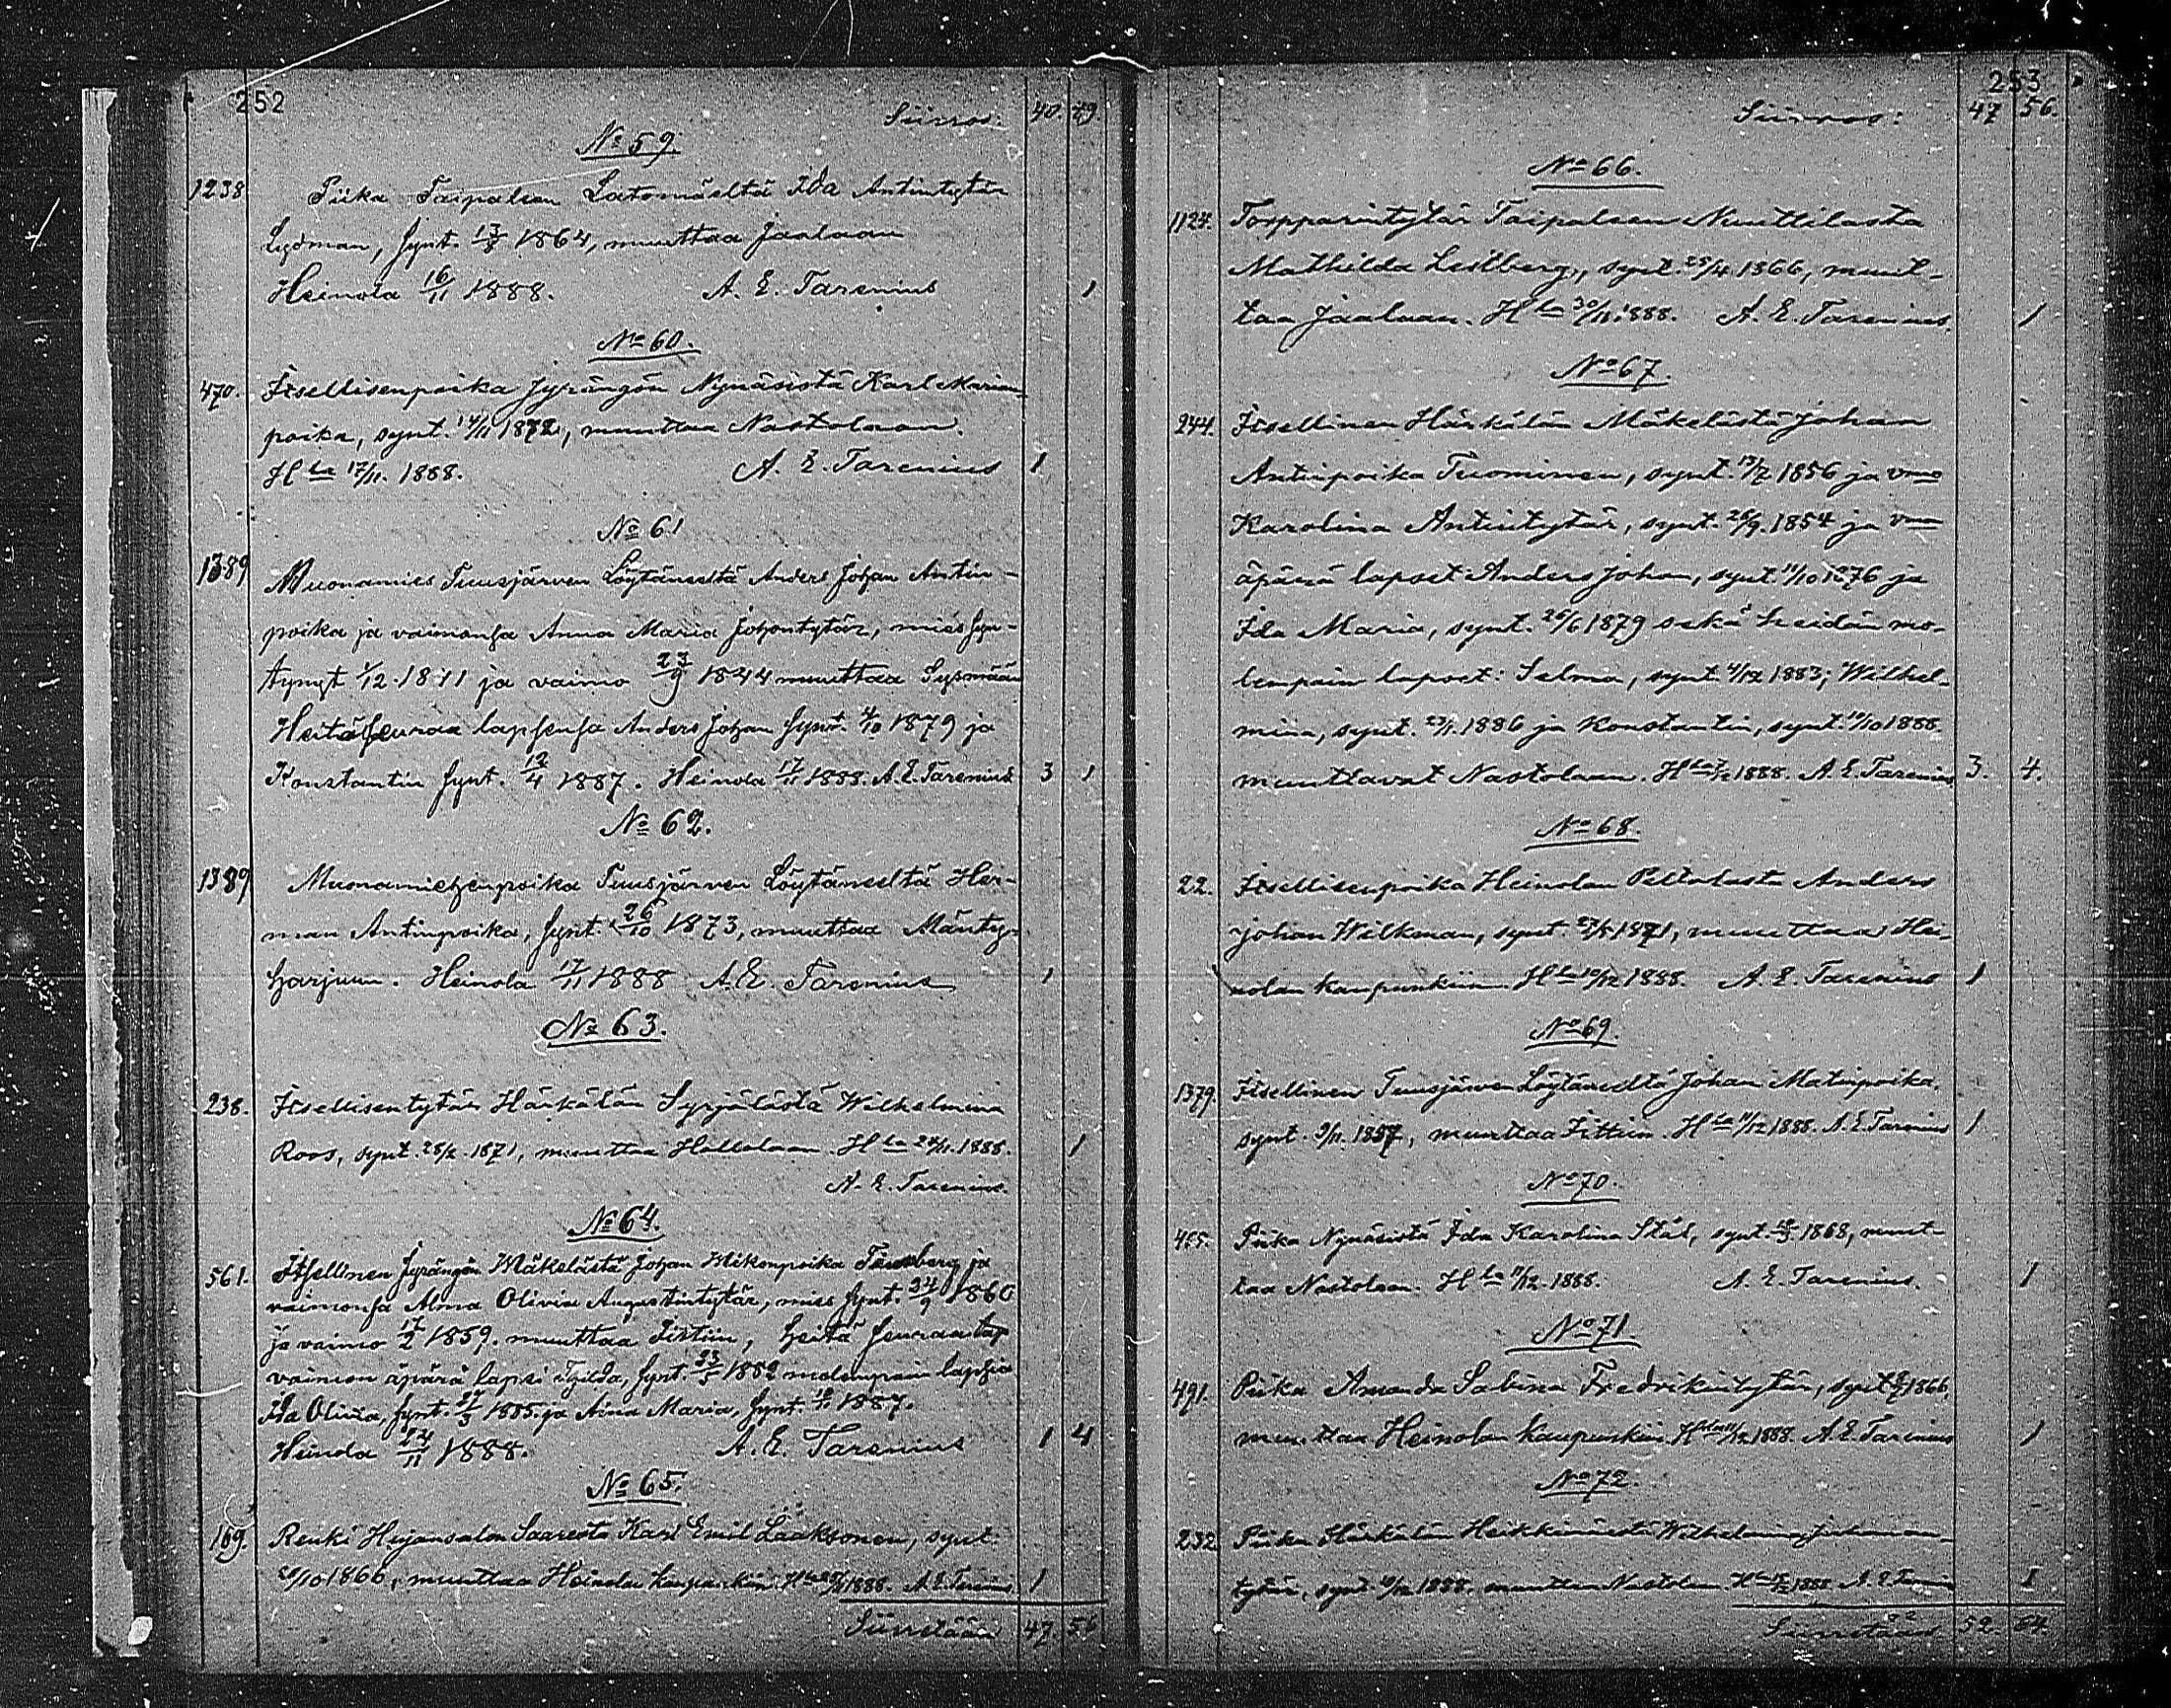 252
Siirros: 40. 49.
No 59.
1238 Piika Taipaleen Latomäeltä Ida Antintytär
Lydman, synt. 17/8 1864, muuttaa Jaalaan
Heinola 16/11 1888. A. E. Tarenius 1
No 60.
470. Itsellisenpoika Jyrängön Nynäsistä Karl Marian-
poika, synt. 14/11 1872, muuttaa Nastolaan.
Hla 17/11. 1888. A. E. Tarenius 1
No 61
1389 Muonamies Tuusjärven Löytäneeltä Anders Johan Antin-
poika ja vaimonsa Anna Maria Johontytär, mies syn-
tynyt 1/12 1841 ja vaimo 23/9 1844 muuttaa Sysmään
Heitä seuraa lapsensa Anders Johan synt. 4/10 1879 ja
Konstantin synt. 12/4 1887. Heinola 17/11 1888. A. E. Tarenius 3 1
No 62.
1389 Muonamiehenpoika Tuusjärven Löytäneeltä Her-
man Antinpoika, synt. 26/10 1873, muuttaa Mänty-
harjuun. Heinola 17/11 1888 A. E. Tarenius 1
No 63.
238. Itsellisentytär Härkälän Syrjälästä Wilhelmina
Roos, synt. 28/2 1871, muuttaa Hollolaan. Hla 24/11. 1888. 1
A. E. Tarenius.
No 64.
561. Itsellinen Jyrängön Mäkelästä Johan Mikonpoika ja
vaimonsa Alma Olivia Augustintytär, mies synt. 24/9 1860
ja vaimo 17/2 1859. muuttaa Iittiin, heitä seuraa
vaimon äpärä lapsi synt. 23/5 1882 molempain lapsia
Ida Olivia, synt. 27/3 1885 ja Aina Maria, synt. 1887.
Heinola 24/11 1888. A. E. Tarenius 1 4
No 65.
169. Renki Heijansalon Saaresta Karl Emil Lääksonen, synt.
20/10 1866, muuttaa Heinolan kaupunkiin. Hla 1888. A. E. Tarenius 1
Siirretään 47. 56
253
Siirros: 47 56.
No 66.
1124. Torpparintytär Taipaleen Nuuttilasta
Mathilda Lestberg, synt. 25/4 1866, muut-
taa Jaalaan. Hla 30/11. 1888. A. E. Tarenius. 1
No 67.
244. Itsellinen Härkälän Mäkelästä Johan
Antinpoika Tuominen, synt. 13/2 1856 ja vmo
Karolina Antintytär, synt. 26/9. 1854 ja vmn
äpärä lapset Anders Johan, synt. 11/10 1876 ja
Ida Maria, synt. 26/6 1879 sekä heidän mo-
lempain lapset: Selma, synt 4/12 1883; Wilhel-
mina, synt. 23/1. 1886 ja Konstantin, synt. 10/10 1888.
muuttavat Nastolaan. Hla 1888. A. E. Tarenius 3. 4.
No 68.
22. Itsellisenpoika Heinolan Peltolasta Anders
Johan Wilkman, synt. 27/5 1871, muuttaa Hei-
nolan kaupunkiin. Hla 10/12 1888. A. E. Tarenius 1
No 69.
1379. Itsellinen Tuusjärven Löytäneeltä Johan Matinpoika,
synt. 9/11. 1857, muuttaa Iittiin. Hla 11/12 1888. A. E. Tarenius 1
No 70.
465. Piika Nynäsistä Ida Karolina Stål, synt. 1868, muut-
taa Nastolaan. Hla 11/12. 1888. A. E. Tarenius. 1
No 71.
491. Piika Amanda Sabina Fredrikintytär, synt 1866,
muuttaa Heinolan kaupunkiin. Hla 1888. A. E. Tarenius 1
No 72.
232 Piika Härkälän Heikkimäestä Wilhelmina Juhanan-
tytär, synt. 1888. muuttaa Nastolaan. Hla 1888 A. E. Tarenius 1
Siirretään 52. 64.